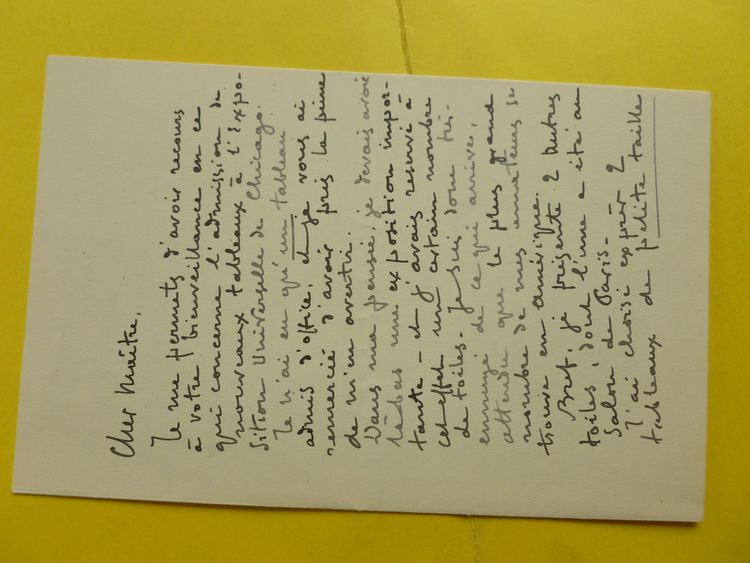 Cher Maître,
Je me permets d'avoir recours
à votre bienveillance en ce
qui concerne l'admission de
nouveaux tableaux à l'Expo-
sition Universelle de Chicago.
Je n'ai eu qu'un tableau
admis d'office, et je vous ai
remercié d'avoir pris la peine
de m'en avertir.
Dans ma pensée, je devais avoir
là-bas une exposition impor-
tante - et j'avais réservé à
cet effet un certain nombre
de toiles. Je suis donc très-
ennuyé de ce qui arrive,
attendu que le plus grand
nombre de mes amateurs se
trouve en Amérique.
Bref, je présente 2 autres
toiles, dont l'une a été au
Salon de Paris -
J'ai choisi exprès 2
tableaux de petite taille